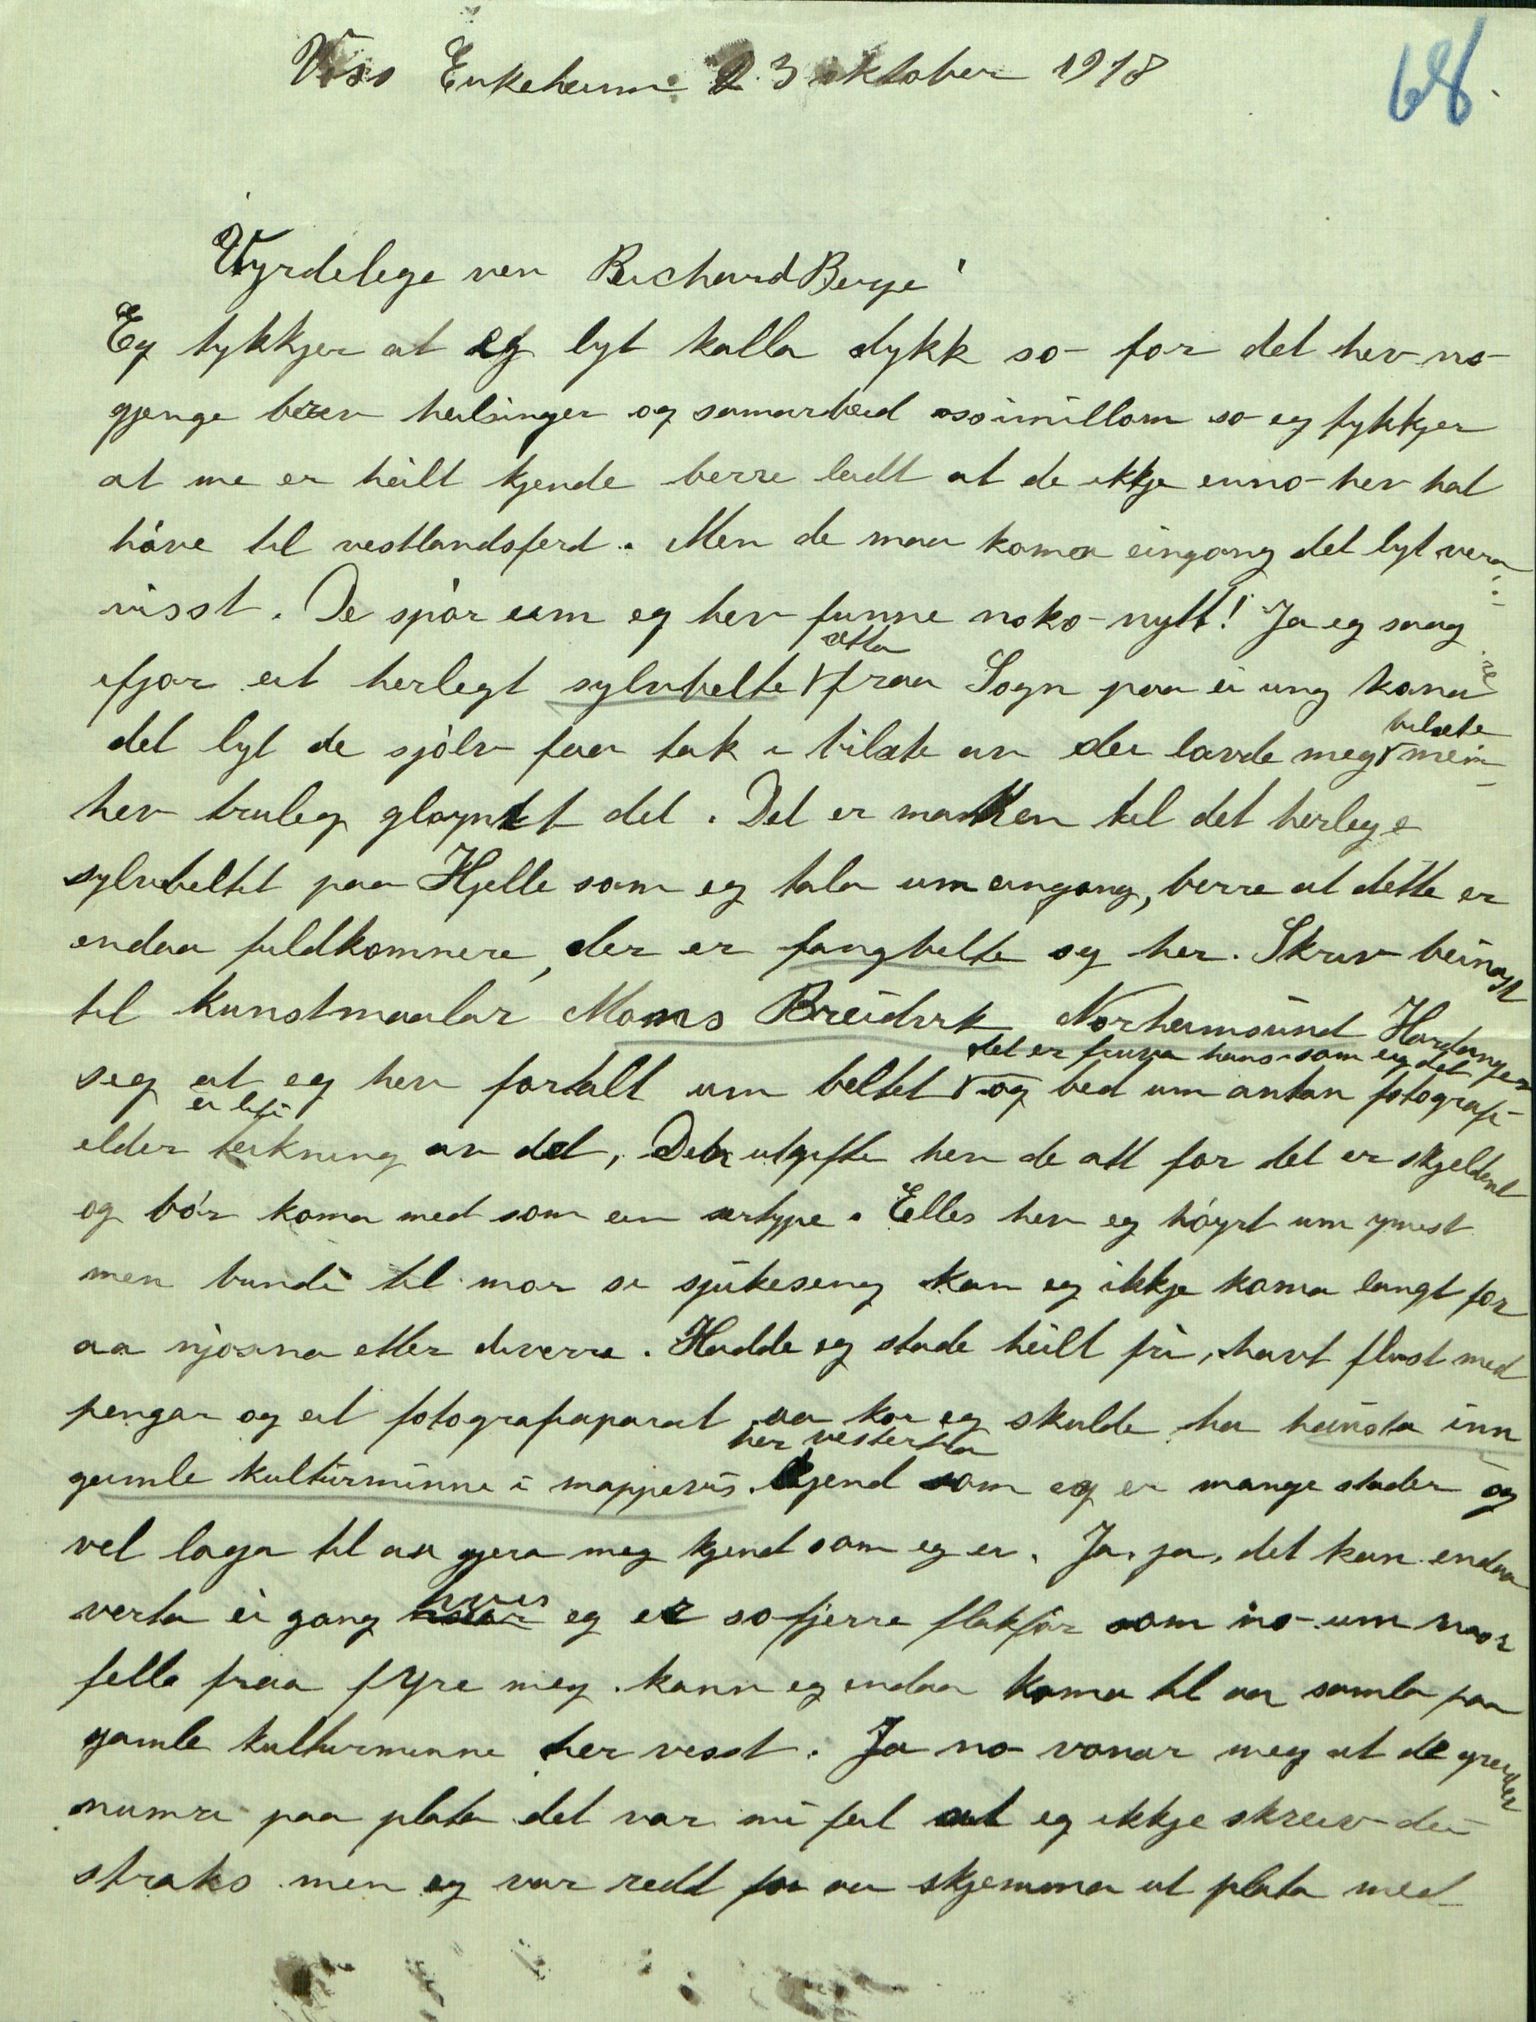 Voss Enkeheim 23 oktober 1918
68.
Vyrdelege ven Richard Berge!
Eg tykkjer at eg lyt kalla dykk so for det hev no
gjenge brev helsingar og samarbeid osoimillom so eg tykkjer
at me er heilt kjende berre leidt at de ikkje enno hev hat
høve til vestlandsferd. Men de maa koma eingong det lyt vera
visst. De spør um eg hev funne noko nytt! Ja eg saag
ifjor eit herlegt sylvbelte ætta fraa Sogn paa ei ung kona
det lyt de sjølv faa tak i bilæte av dei lovde meg bilæte men
hev truleg gløymt det. Det er maken til det herlege
sylvbeltet paa Hjelle som eg tala um eingong, berre at dette er
endaa fuldkomnere, der er fangbelte og her. Skriv beinast
til kunstmaalar Mons Breidvik Norheimsund Hardanger
seg at eg hev fortalt um beltet det er fruva hans som eig det og bed um antan fotografi
elder ei liti teikning av det, Den utgifta hev de att for det er skjeldent
og bør koma med som ein særtype. Elles hev eg høyrt um ymist
men bundi til mor si sjukeseng kan eg ikkje koma langt for
aa njosna etter diverre. Hadde eg stade heilt fri, havt flust med
pengar og eit fotografaparat aa kor eg skulde ha hausta inn
gamle kulturminne i mappevis. her vestertha Kjend som eg er mange stader og
vel laga til aa gjera meg kjend som eg er. Ja, ja, det kan endaa
verta ei gong hvis eg er so fjerre flakfør som no um mor
fell fraa fyre meg. kann eg endaa koma til aa samla paa
gamle kulturminne her vesst. Ja no vonar meg at de greider
numra paa plata det var mi feil at eg ikkje skreiv dei
straks men eg var redd for aa skjemma ut plata med